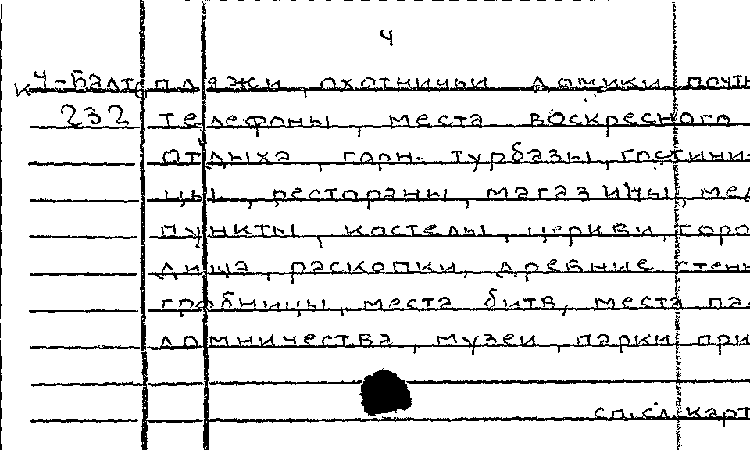 4
К4-Балт пляжи, охотничьи домики, почт
232 телефоны, места воскресного
отдыха, горн. турбазы, гостини-
цы, рестораны, магазины, мед
пункты, костелы, церкви, горо
дища, раскопки, древние стены
гробницы, места битв, места па
ломничества, музеи, парки при
сл. карт